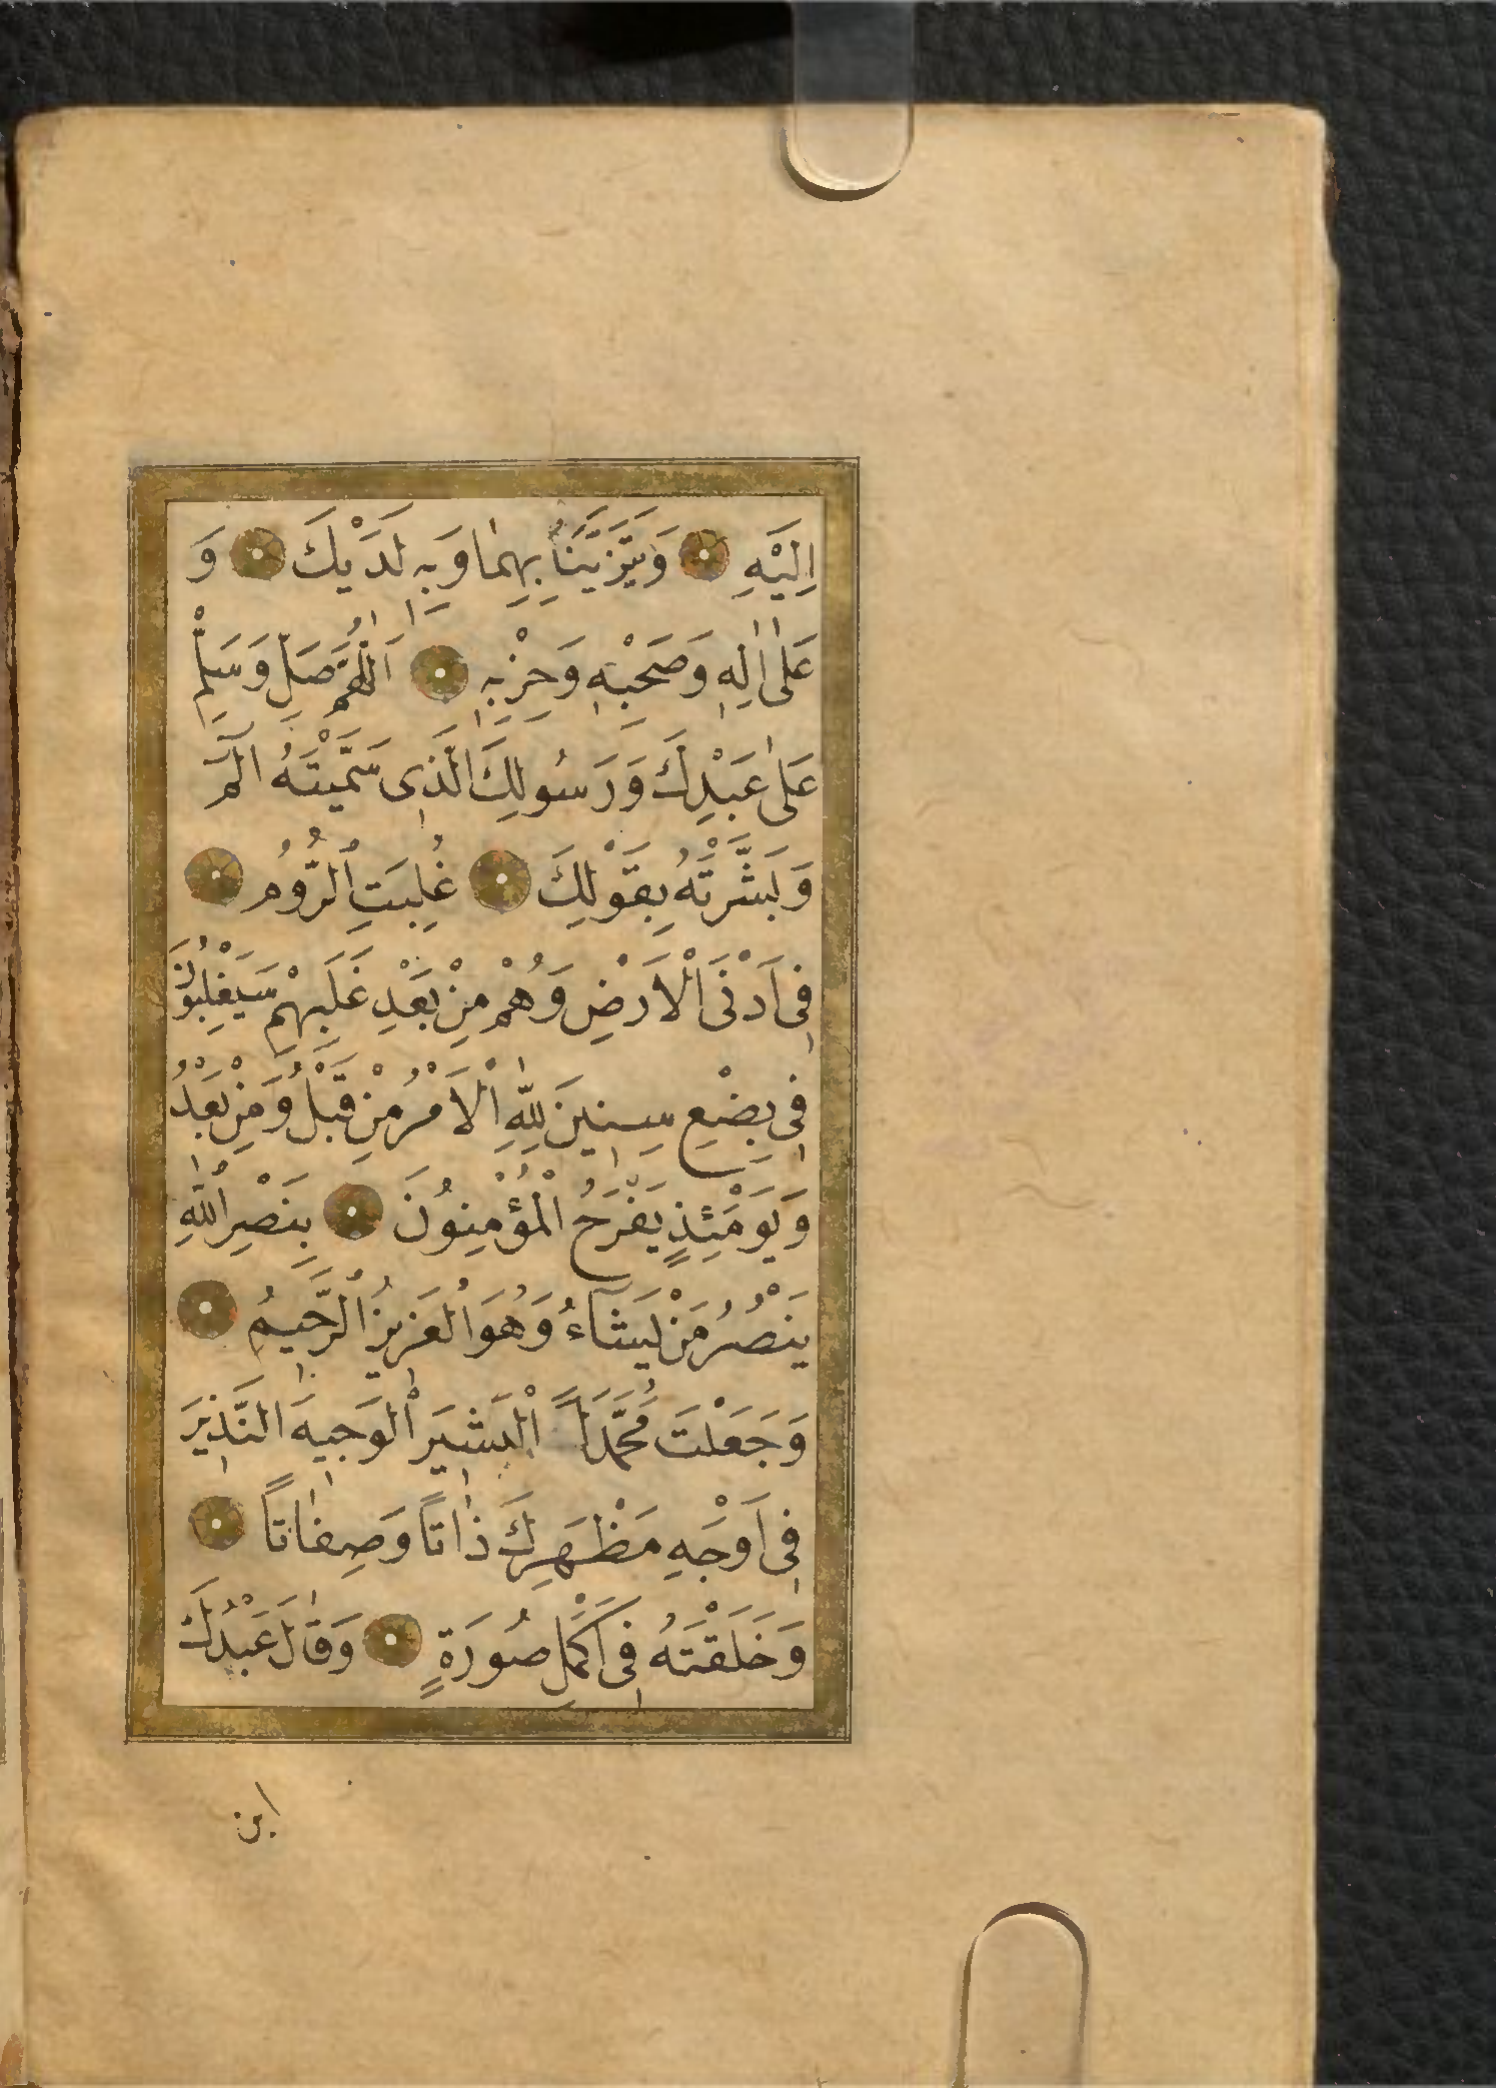 اِلَيْهِ وَيَتَزَيَّنَا بِهِمَا وَبِهِ لَدَيْكَ وَ
عَلٰى اٰلِهِ وَصَحْبِهِ وَحِزْبِهِ اَللّٰهُمَّ صَلِّ وَسَلِّمْ
عَلٰى عَبْدِكَ وَرَسُولِكَ الَّذِى سَمَّيْتَهُ الٓمٓ
وَبَشَّرْتَهُ بِقَوْلِكَ غُلِبَتِ الرُّومُ
فِى اَدْنَى الْاَرْضِ وَهُمْ مِنْ بَعْدِ غَلَبِهِمْ سَيَغْلِبُونَ
فِى بِضْعِ سِنِينَ لِلّٰهِ الْاَمْرُ مِنْ قَبْلُ وَمِنْ بَعْدُ
وَيَوْمَئِذٍ يَفْرَحُ الْمُؤْمِنُونَ بِنَصْرِ اللّٰهِ
يَنْصُرُ مَنْ يَشَآءُ وَهُوَ الْعَزِيزُ الرَّحِيمُ
وَجَعَلْتَ مُحَمَّدًا الْبَشِيرَ الْوَجِيهَ النَّذِيرَ
فِى اَوْجَهِ مَظْهَرِكَ ذَاتًا وَصِفَاتًا
وَخَلَقْتَهُ فِى اَكْمَلِ صُورَةٍ وَقَالَ عَبْدُكَ
ابن